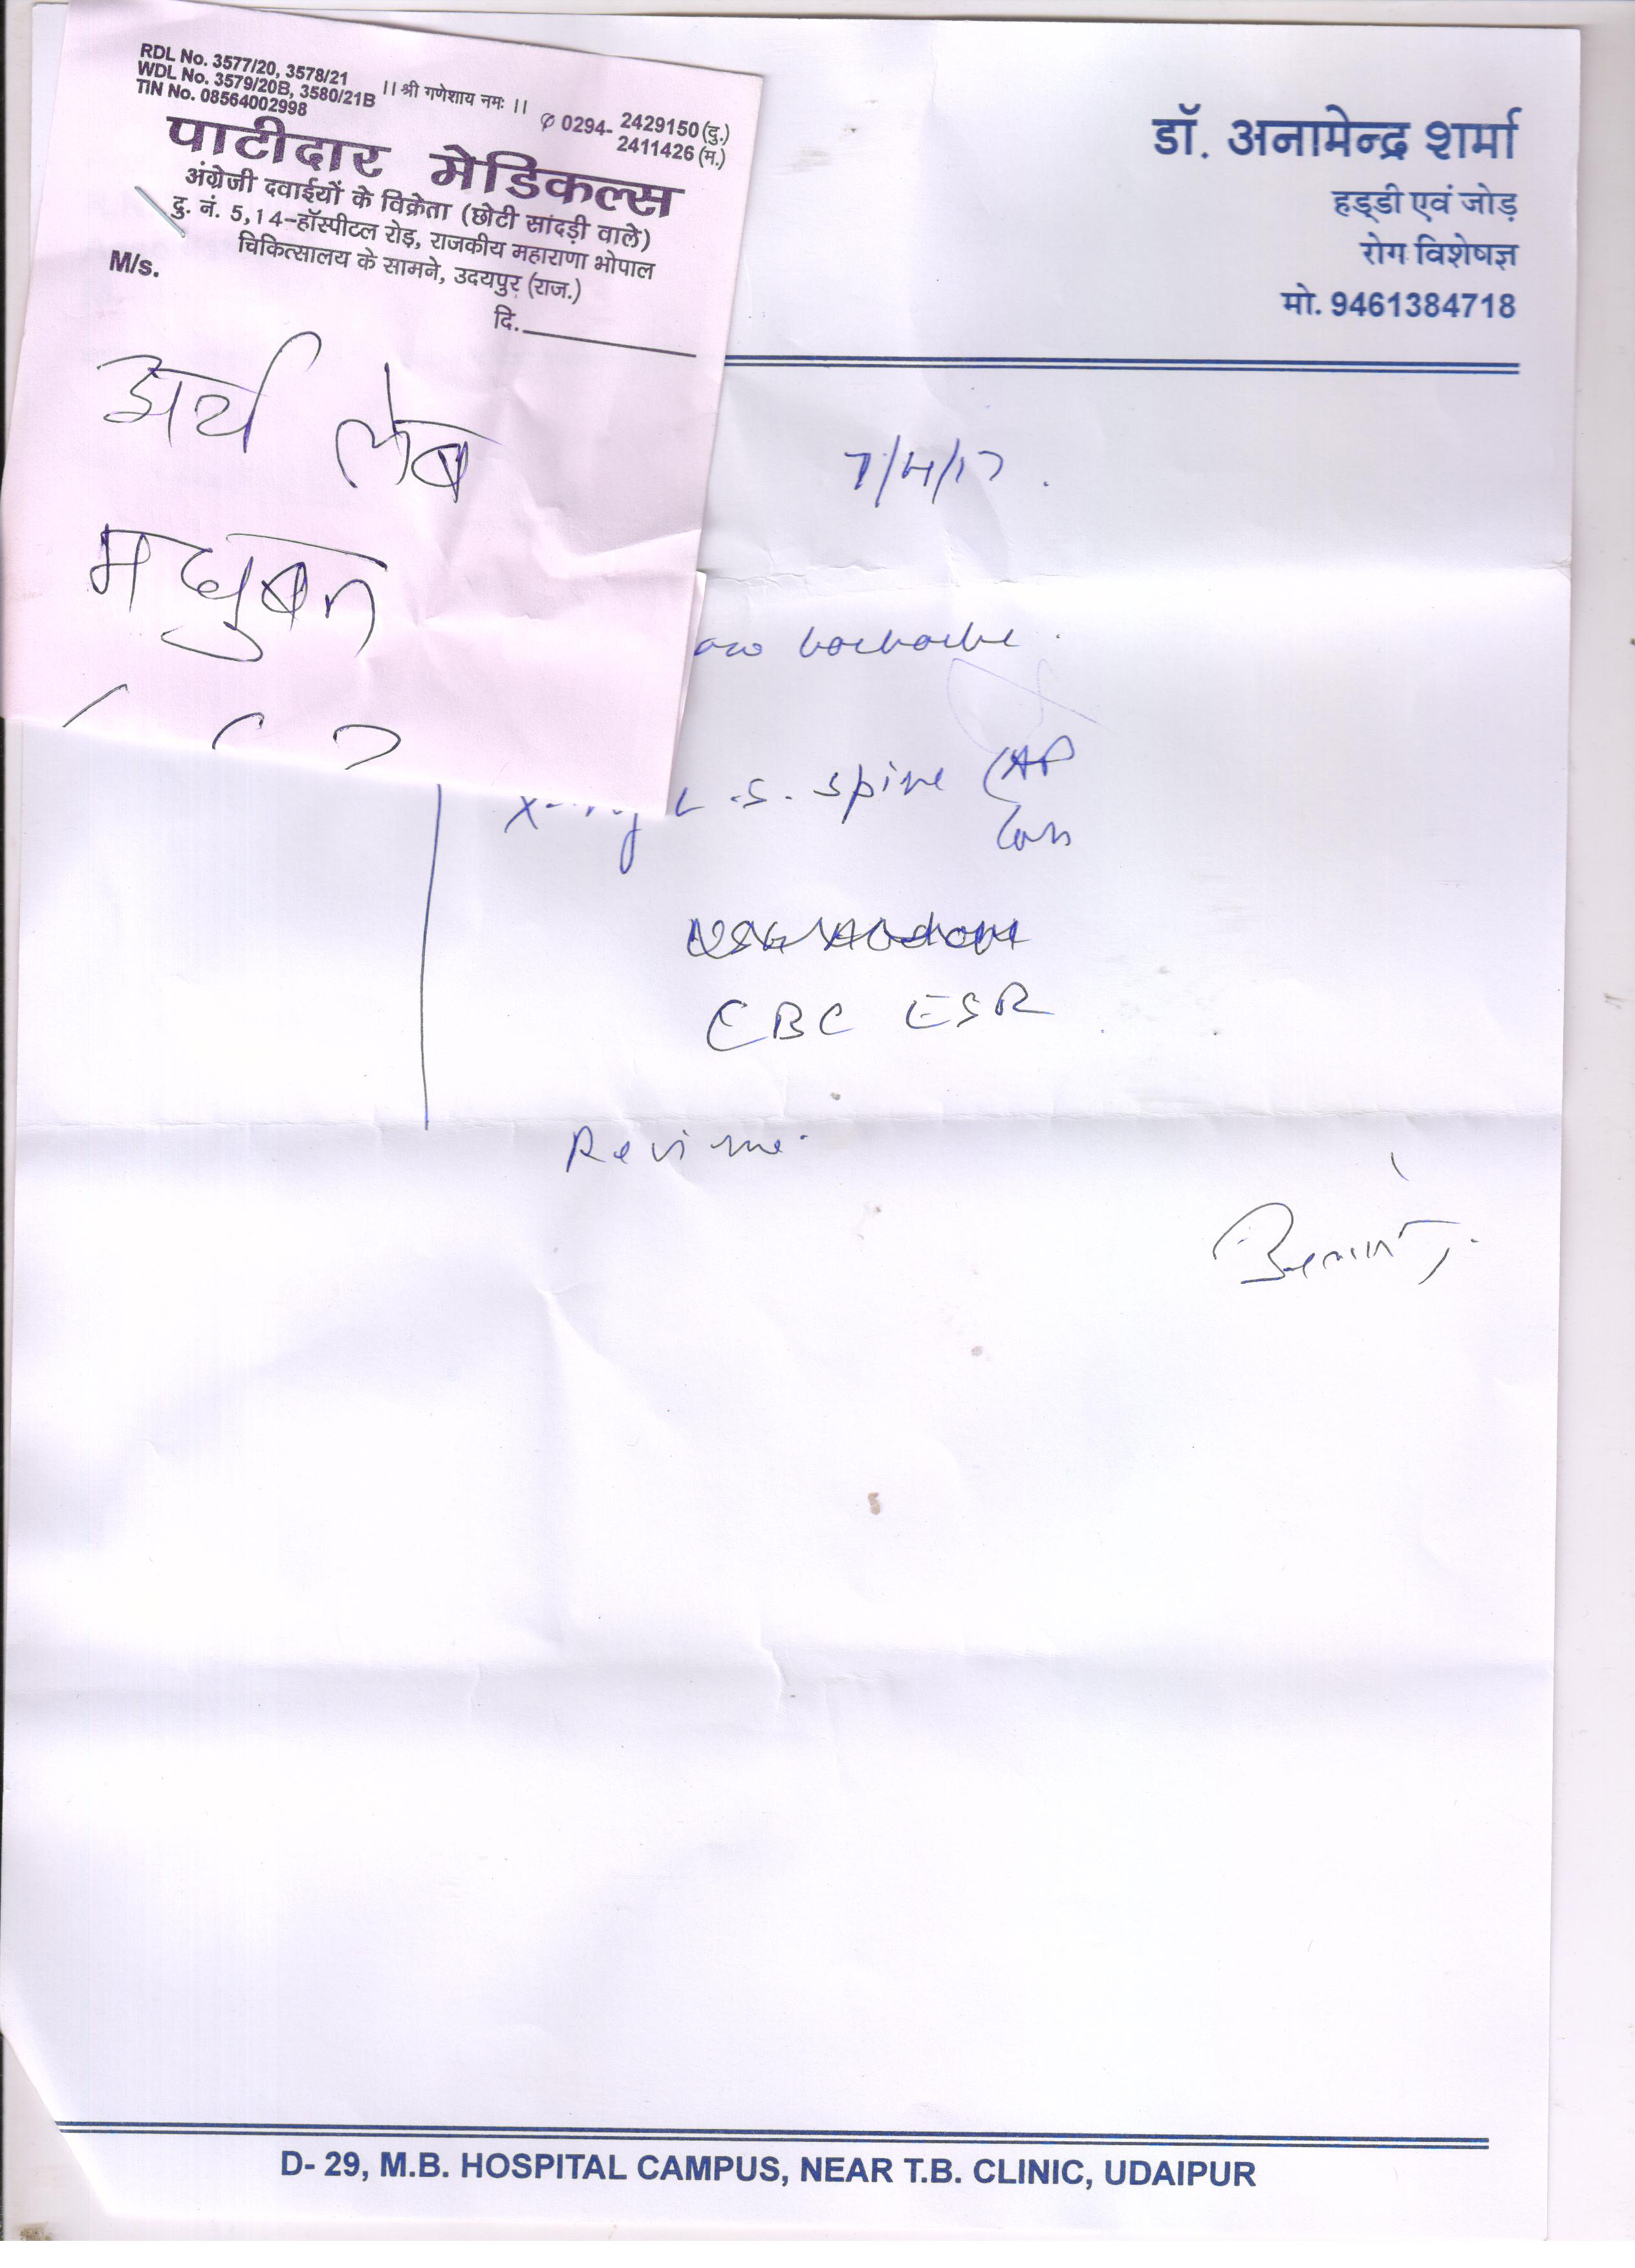 RDL No. 3577/20, 3578/21
WDL No. 3579/20B, 3580/21B
TIN No. 08564002998
।। श्री गणेशाय नमः ।।
✆ 0294- 2429150 (दु.)
2411426 (म.)
पाटीदार मेडिकल्स
अंग्रेजी दवाईयों के विक्रेता (छोटी सांदड़ी वाले)
दु. नं. 5,14-हॉस्पीटल रोड़, राजकीय महाराणा भोपाल
चिकित्सालय के सामने, उदयपुर (राज.)
M/s.
दि.
अर्थ लेब
मधुबन
डॉ. अनामेन्द्र शर्मा
हड्डी एवं जोड़
रोग विशेषज्ञ
मो. 9461384718
7/4/17
backache
X-ray L.S. spine (AP
CBC ESR
D- 29, M.B. HOSPITAL CAMPUS, NEAR T.B. CLINIC, UDAIPUR